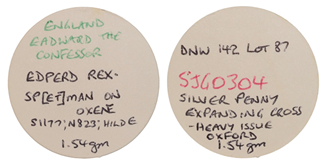 ENGLAND
EADWARD THE
CONFESSOR
EDPERD REX-
SP[ET]MAN ON
OXENE
S1177; N823; HILD E
1.54gm
DNW 142 LOT 87
SJG0304
SILVER PENNY
EXPANDING CROSS
-HEAVY ISSUE
OXFORD
1.54gm